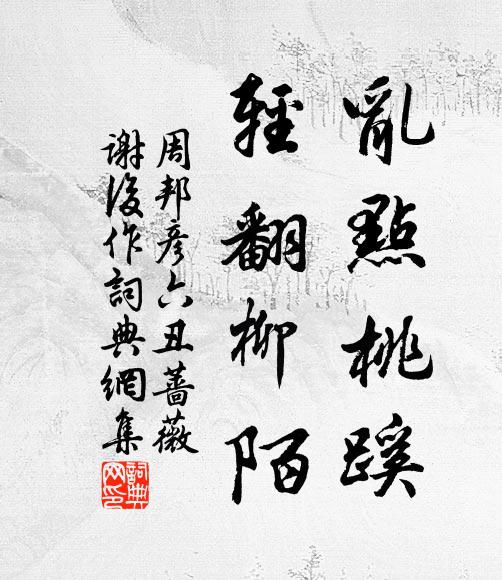 亂點桃蹊
輕翻柳陌
周邦彥六丑薔薇
謝後作詞典網集
詞典
网印